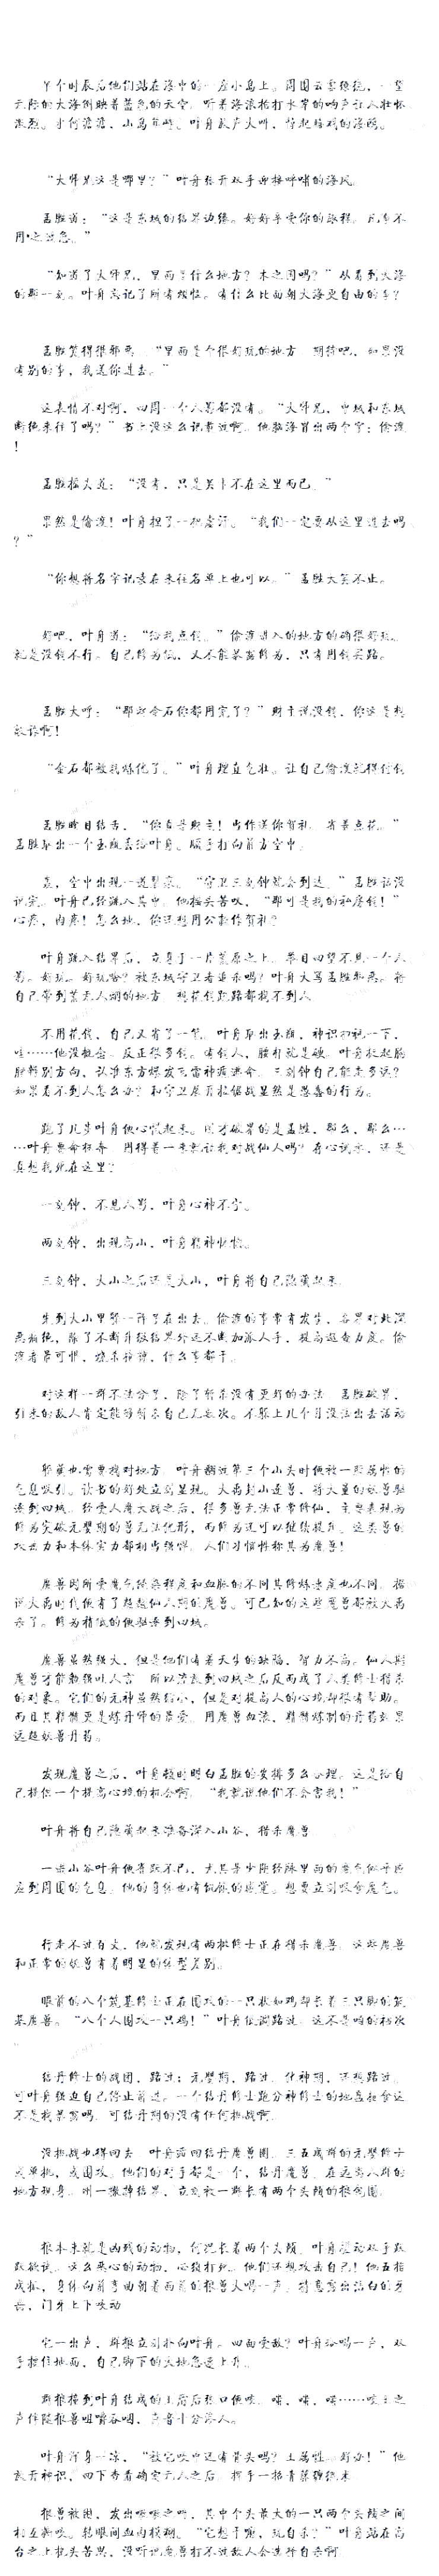 半个时辰后他们站在海中的一座小岛上。周围云雾缭绕，一望
无际的大海倒映着蓝色的天空，听着海浪拍打水岸的响声让人壮怀
激烈。叶舟放声大叫，
“大师兄这是哪里？”叶舟张开双手迎接呼啸的海风。
孟胜道：“这是东域的结界边缘。好好享受你的旅程，
“知道了大师兄，里面是什么地方？木之国吗？”从看到大海
的那一刻。叶舟忘记了所有烦恼。有什么比面朝大海更自由的事？
孟胜笑得很邪恶。“里面是个很好玩的地方，期待吧，如果没
有别的事，我送你进去。”
这表情不对啊，四周一个人影都没有。“大师兄，中域和东域
断绝来往了吗？”书上没这么记载过啊。他脑海冒出两个字：偷渡
！
孟胜摇头道：“没有，只是关卡不在这里而已。”
果然是偷渡！叶舟捏了一把虚汗。“我们一定要从这里进去吗
？”
“你想将名字记录在来往名单上也可以。”孟胜大笑不止。
好吧，叶舟道：“给我点钱。”偷渡进入的地方的确很好玩。
就是没钱不行。自己修为低，又不能暴露修为，只有用钱买路。
孟胜大呼：“那些金石你都用完了？”财主说没钱，你这是想
敲诈啊！
“金石都被我炼化了。”叶舟理直气壮。让自己偷渡就得付钱
。
孟胜瞪目结舌，“你真是财主！当作送你贺礼，省着点花。”
孟胜取出一个玉瓶丢给叶舟。随手打向前方空中。
轰，空中出现一道裂家。“守卫三刻钟就会到达。”孟胜话没
说完。叶舟已经跳入其中。他摇头苦叹，“那可是我的私房钱！”
心疼，肉疼！怎么地，你还想用公款作贺礼？
叶舟跳入结界后，立身于一片荒原之上。举目四望不见一个人
影。好玩。好玩啥？被东域守卫者追杀吗？叶舟大骂孟胜邪恶。将
自己带到荒无人烟的地方，想花钱跑路都找不到人
不用花钱，自己又省了一笔。叶舟取出玉瓶，神识扫视一下，
哇……他没概念。反正很多钱。有钱人，腰杆就是硬。叶舟
转别方向，认准东方爆发飞雷神疵逃命。三刻钟自己能走多远？
如果看不到人怎么办？和守卫展开拉锯战显然是愚蠢的行为。
跑了几步叶舟便心慌起来。刚才破界的是孟胜，那么，那么…
…叶舟要命狂奔。用得着一来就让我对战仙人吗？存心试炼，还是
真想我死在这里？
一刻钟，不见人影，叶舟心神不宁。
两刻钟，出现高山，叶舟精神
三刻钟，大山之后还是大山，叶舟将自己隐藏起来。
先到大山里躲一阵子在出去。偷渡的事常有发生，各界对此深
恶痛绝，除了不断升级结界外还不断加派人手，提高巡查力度。偷
渡者最可恨，烧杀抢掠，什么事都干。
对这样一群不法分子，除了斩杀没有更好的办法。孟胜破界，
引来的敌人肯定能够斩杀自己无数次。不躲上几个月没法出去活动
躲藏也需要找对地方，叶舟翻过第三个小头时便被一股属性的
气息吸引。读书的好处立刻呈现。大禹封小逐兽，将大量的妖兽驱
逐到四域。经受人魔大战之后，很多兽无法正常修仙，主要表现为
修为突破元婴期的兽无法化形，而修为还可以继续提升。这类兽的
攻击力和本体实力都相当强悍。人们习惯性称其为魔兽！
魔兽因所受魔气侵染程度和血脉的不同其修炼速度也不同。据
说大禹时代便有了超越仙人期的魔兽。可已知的这些魔兽都被大禹
杀了。修为稍低的便驱逐到四域。
魔兽虽然强大，但是他们有着天生的缺陷，智力不高。仙人期
魔兽才能勉强吐人言。所以流放到四域之后反而成了人类修士猎杀
的对象。它们的元神虽然弱小，但是对提高人的心境却很有帮助。
而且其精髓更是炼丹师的最爱。用魔兽血液，精髓炼制的丹药效果
远超妖兽丹药。
发现魔兽之后，叶舟顿时明白孟胜的安排多么合理。这是给自
己提供一个提高心境的机会啊。“我就说他们不会害我！”
叶舟将自己隐藏起来准备深入山谷，猎杀魔兽
一进山谷叶舟便雀跃不已，尤其是少阴经脉里面的魔气似乎感
应到周围的气息。他的身体也有饥饿的感觉。想要立刻吸食魔气。
行走不过百丈，他就发现有两批修士正在猎杀魔兽。这些魔兽
和正常的妖兽有着明显的体型差别。
眼前的八个筑基修士正在围攻的一只状如鸡却长着三只脚的筑
基魔兽。“八个人围攻一只鸡！”叶舟低调路过。这不是咱的档次
。
结丹修士的战团，路过；元婴期，路过，化神期，还想路过。
可叶舟强迫自己停止前进。一个结丹修士跑分神修士的地盘狂奔这
不是找暴露吗。可结丹期的没有任何挑战啊。
没挑战也得回去，叶舟返回结丹魔兽圈。三五成群的元婴修士
或单挑，或围攻，他们的对手都是一个，结丹魔兽。在远离人群的
地方现身。刚一撤掉结界，立刻被一群长有两个头颅的狼包围。
狼本来就是凶残的动物，何况长着两个头颅。叶舟摆动双手跃
跃欲试。这么恶心的动物，必须打死。他们还想攻击自己！他五指
成抓，身体向前弯曲朝着西面的狼兽大喝一声，特意露出洁白的牙
齿，门牙上下咬动
它一出声，群狼立刻扑向叶舟。四面受敌？叶舟冷喝一声，双
手按住地面，自己脚下的大地急速上升。
群狼撞到叶舟结成的土盾后张口便咬。嘣，嘣，嘣……咬土之
声伴随狼兽咀嚼吞咽，声音十分渗人。
叶舟浑身一凉，“被它咬中还有骨头吗？土属性，好办！”他
放开神识，四下查看确定无人之后。挥手一招青藤缠绕术
狼兽被困，发出嗷嗷之叫，其中个头最大的一只两个头颅之间
相互撕咬。转眼间血肉模糊。“它想干嘛，玩自杀？”叶舟站在高
台之上扰头苦思，没听说魔兽打不过敌人会选择自杀啊